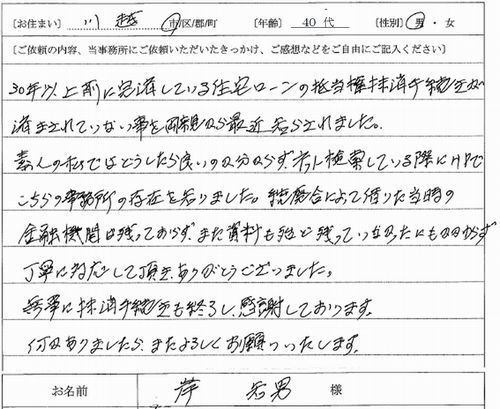 【お住まい】 川越 市/区/郡/町 【年齢】 40代 【性別】 男・女
【ご依頼の内容、当事務所にご依頼いただいたきっかけ、ご感想などをご自由にご記入ください】
30年以上前に完済している住宅ローンの抵当権抹消手続きが
済まされていない事を両親から最近知らされました。
素人の私ではどうしたら良いのか分からず、ネット検索している際にHPで
こちらの事務所の存在を知りました。統廃合によって借りた当時の
金融機関は残っておらず、また資料も殆ど残っていなかったにもかかわらず
丁寧に対応して頂き、ありがとうございました。
無事に抹消手続きも終了し、感謝しております。
何かありましたら、またよろしくお願いいたします。
お名前 男 様